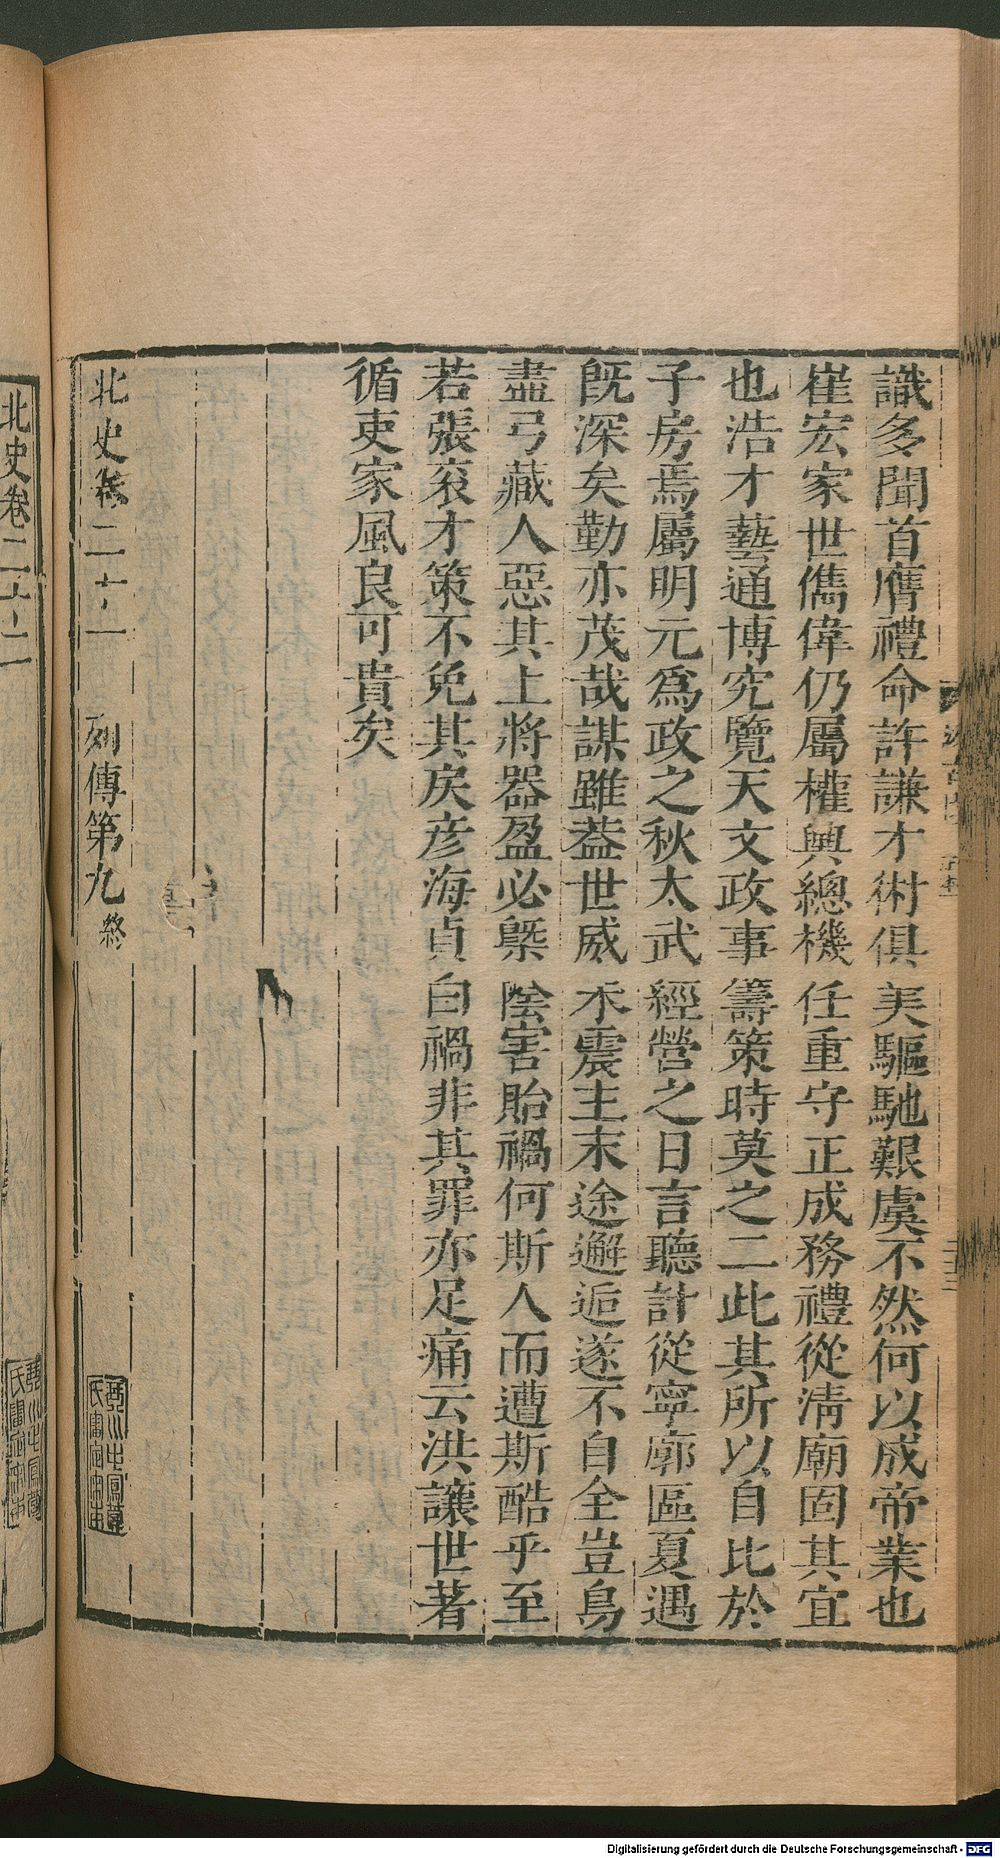 識多聞首膺禮命許謙才術俱美驅馳艱虞不然何以成帝業也
崔宏家世儁偉仍屬權輿總機任重守正成務禮從淸廟固其宜
也浩才藝通博究覽天文政事籌策時莫之二此其所以自比於
子房焉屬明元爲政之秋太武經營之日言聽計從寧廓區夏遇
旣深矣勤亦茂哉謀雖葢世威未震主末途邂逅遂不自全豈鳥
盡弓藏人惡其上將器盈必槩陰害貽禍何斯人而遭斯酷乎至
若張衮才策不免其戾彦海貞白禍非其罪亦足痛云洪讓世著
循吏家風良可貴矣
北史卷二十一 列傳第九終
北史卷二十二
Digitalisierung gefördert durch die Deutsche Forschungsgemeinschaft - DFG